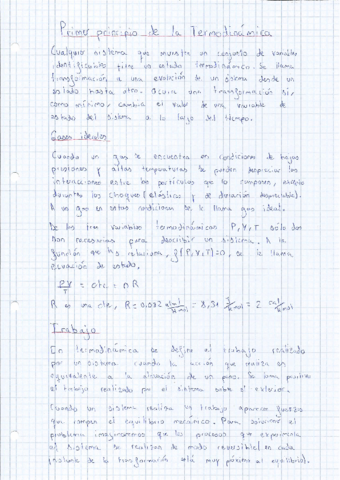 Primer principio de la Termodinámica
Cualquier sistema que muestre un conjunto de variables
identificables tiene un estado termodinámico. Se llama
transformación a una evolución de un sistema desde un
estado hasta otro. Ocurre una transformación si,
como mínimo, cambia el valor de una variable de
estado del sistema a lo largo del tiempo.
Gases ideales
Cuando un gas se encuentra en condiciones de bajas
presiones y altas temperaturas se pueden despreciar las
interacciones entre las partículas que lo componen, excepto
durante los choques (elásticos y de duración despreciable).
A un gas en estas condiciones se le llama gas ideal.
De las tres variables termodinámicas P, V, T sólo dos
son necesarias para describir un sistema. A la
función que las relaciona, f(P,V,T)=0, se le llama
ecuación de estado.
PV/T = cte = nR
R es una cte, R = 0,082 atm l/K mol = 8,31 J/K mol = 2 cal/K mol
Trabajo
En termodinámica se define el trabajo realizado
por un sistema cuando la acción que realiza es
equivalente a la elevación de un peso. Se toma positivo
el trabajo realizado por el sistema sobre el exterior.
Cuando un sistema realiza un trabajo aparecen fuerzas
que rompen el equilibrio mecánico. Para solucionar el
problema imaginaremos que los procesos que experimenta
el sistema se realizan de modo reversible (en cada
instante de la transformación está muy próximo al equilibrio).